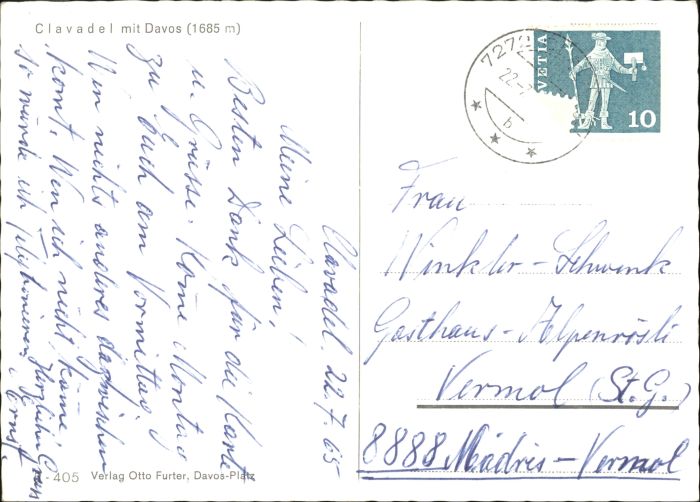 Clavadel mit Davos (1685 m)
Clavadel 22.7.65
Meine Lieben!
Besten Dank für die Karte
u. Grüsse. Kome Montag
zu Euch am Vormittag
Wen nichts anderes dazwischen
komt. Wen ich nicht kome
so würde ich telephonieren
Herzliche Gruss
Ernst.
405 Verlag Otto Furter, Davos-Platz
7272
22.-7
b
VETIA
10
Frau
Winkler-Schwenk
Gasthaus-Alpenrösli
Vermol (St.G.)
8888 Mädris-Vermol